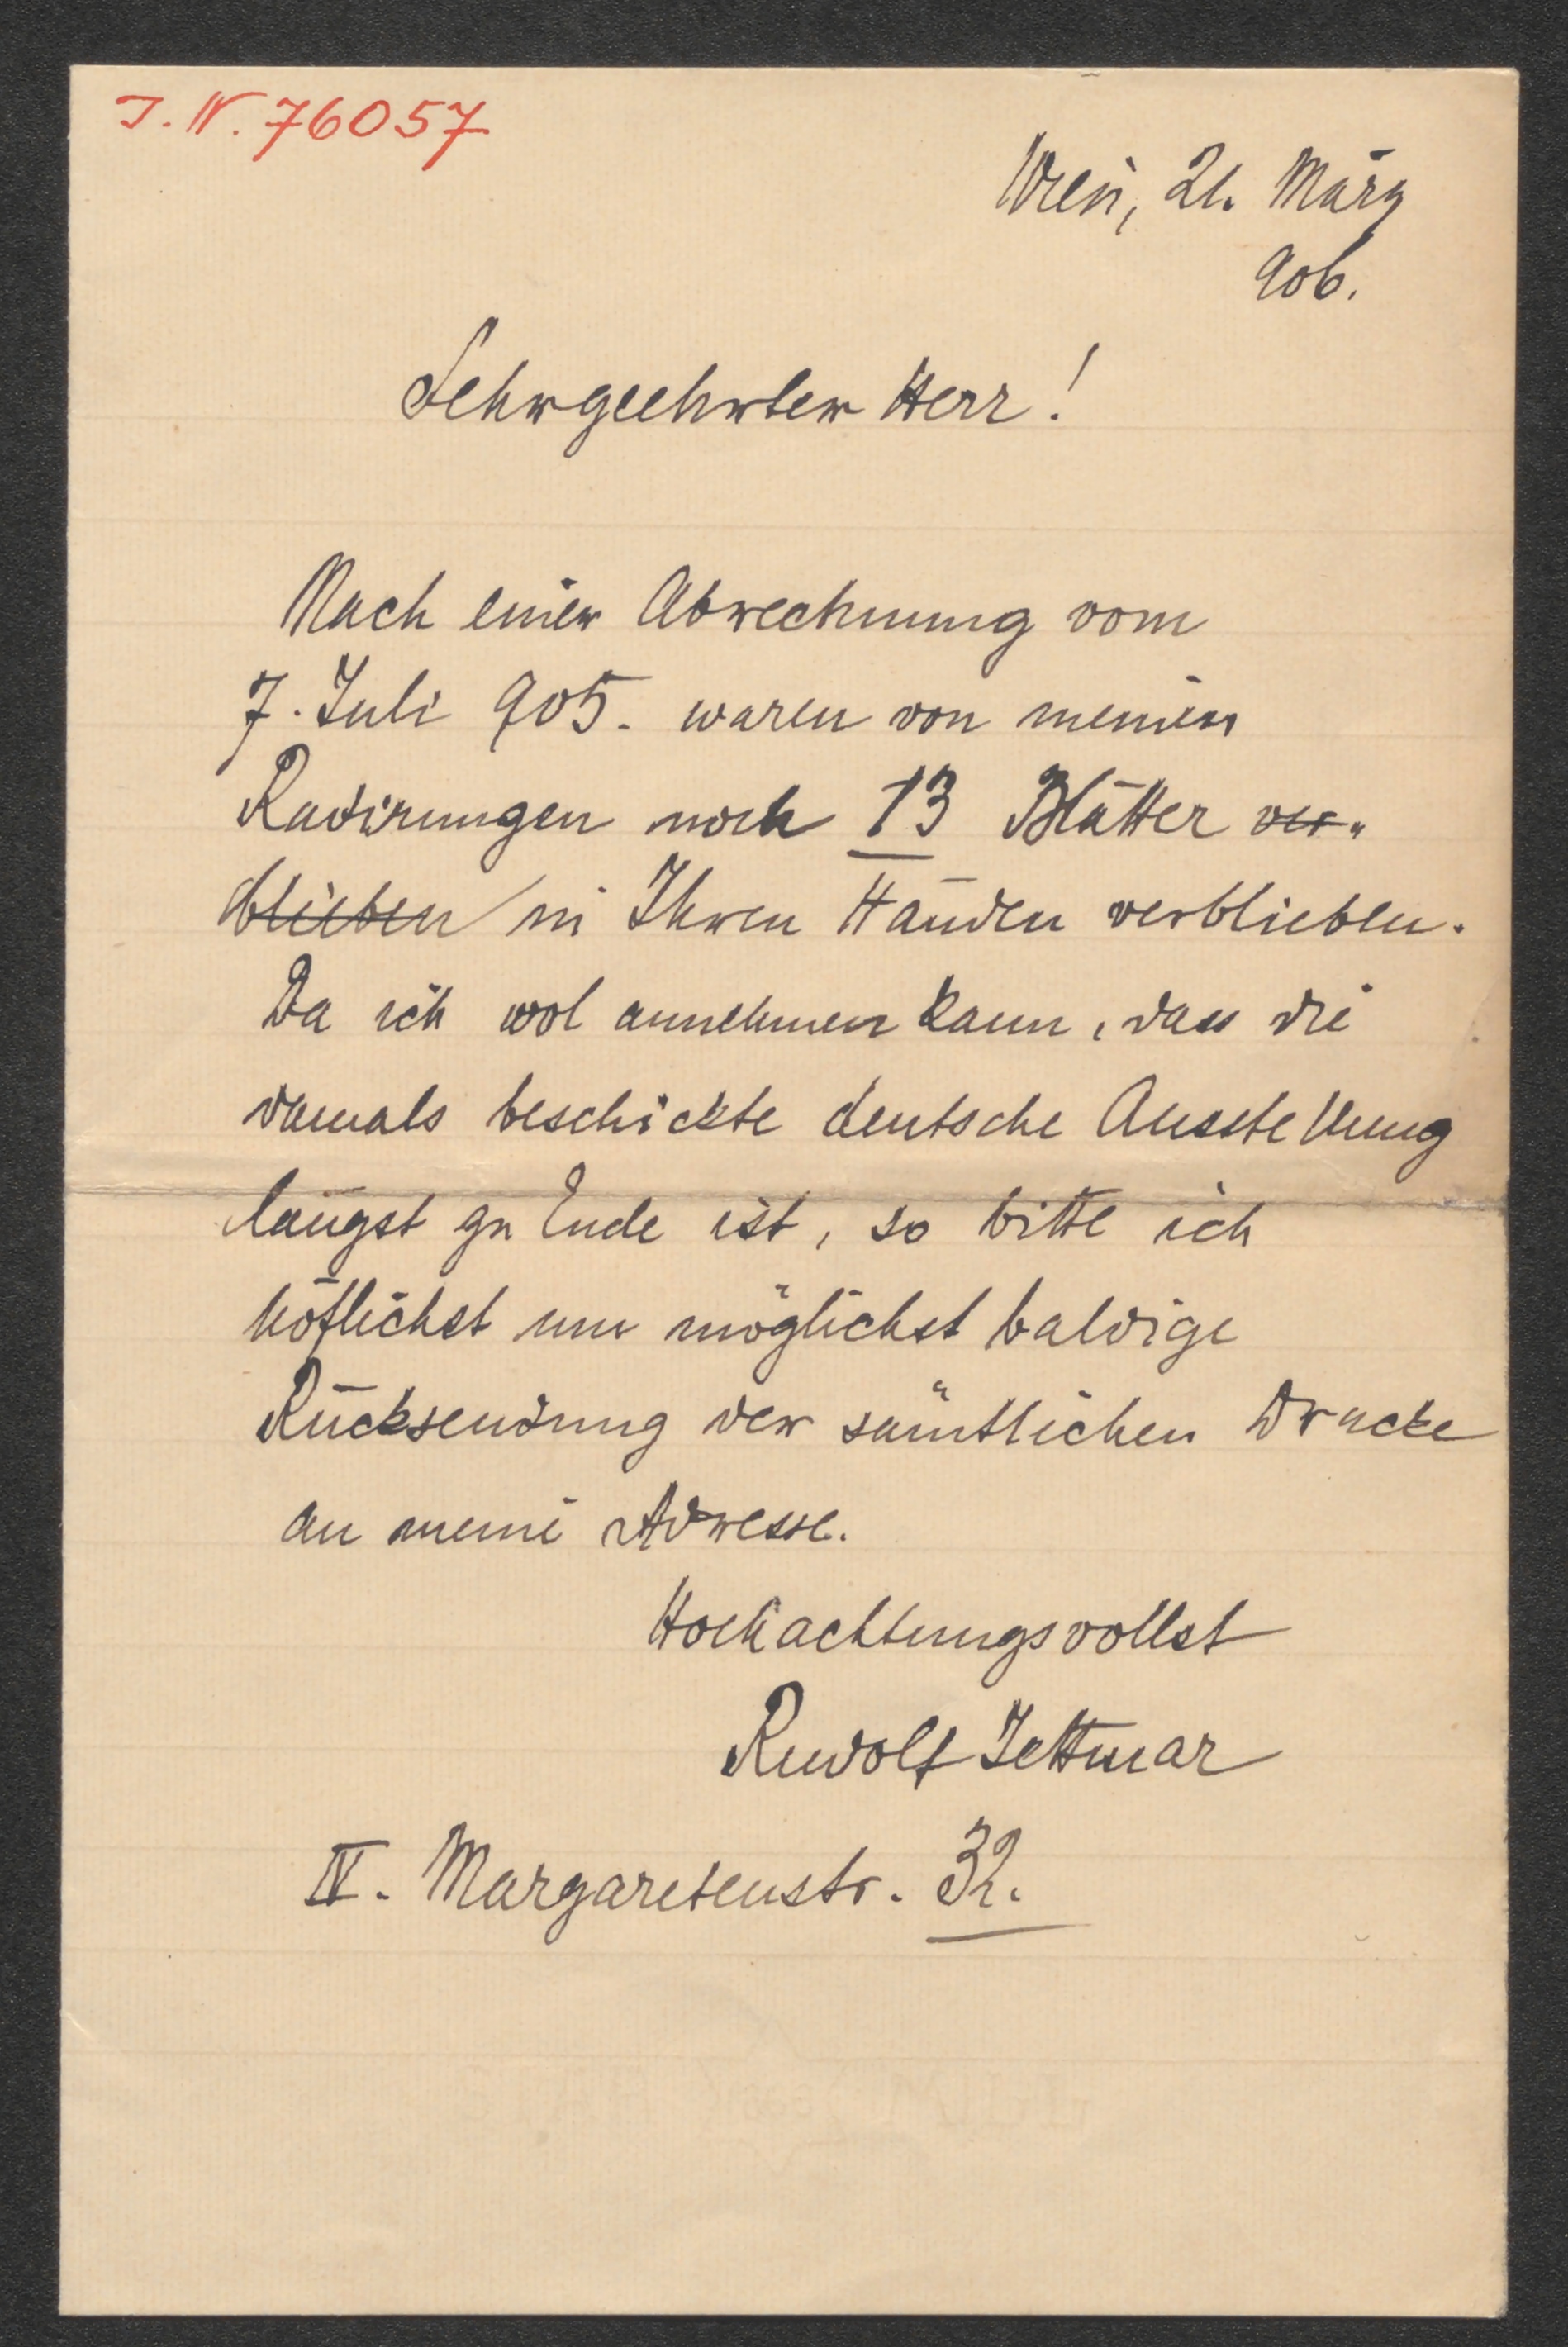 J.N. 76057
Wien, 21. März
906.
Sehrgeehrter Herr!
Nach einer Abrechnung vom
7. Juli 905. waren von meinen
Radirungen noch 13 Blätter ver-
blieben in Ihren Händen verblieben.
Da ich wol annehmen kann, dass die
damals beschickte deutsche Ausstellung
längst zu Ende ist, so bitte ich
höflichst um möglichst baldige
Rücksendung der sämtlichen Drucke
an meine Adresse.
Hochachtungsvollst
Rudolf Jettmar
IV. Margaretenstr. 32.